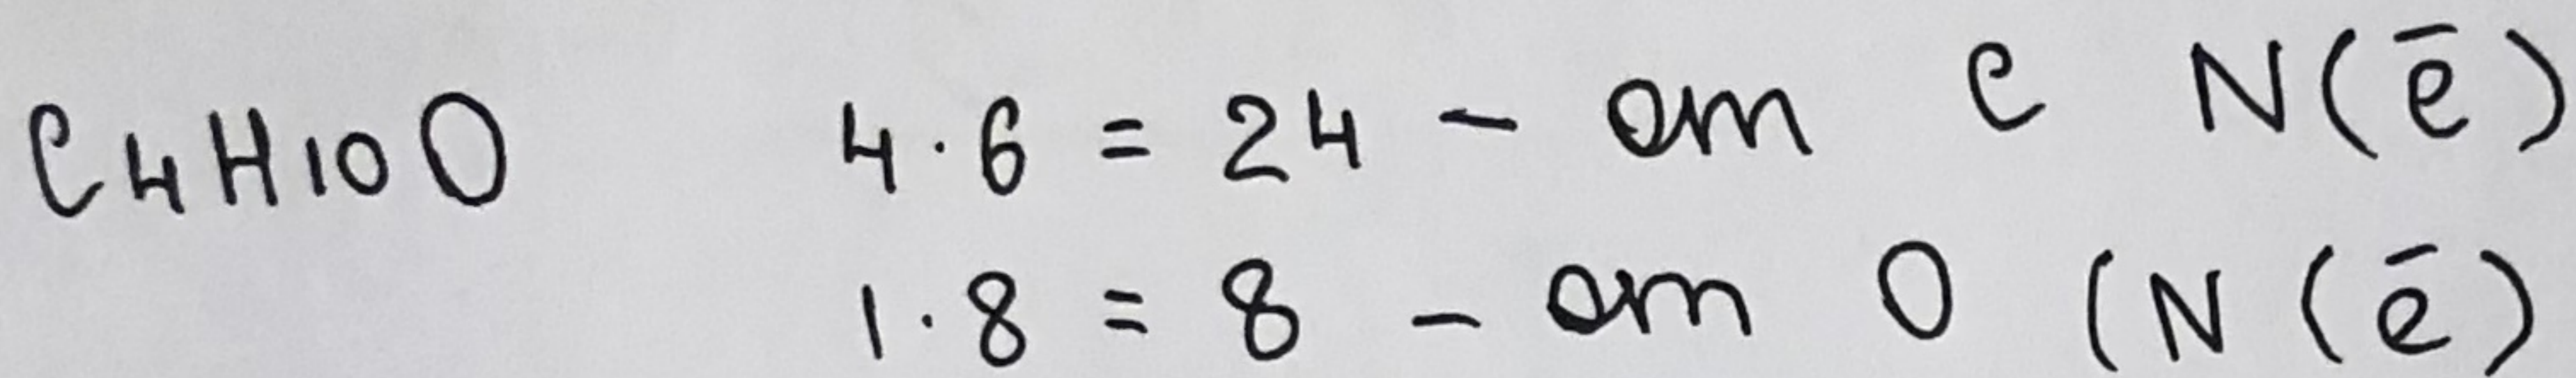 C4H10O 4·6 = 24 - от C N(ē)
1·8 = 8 - от O (N(ē)